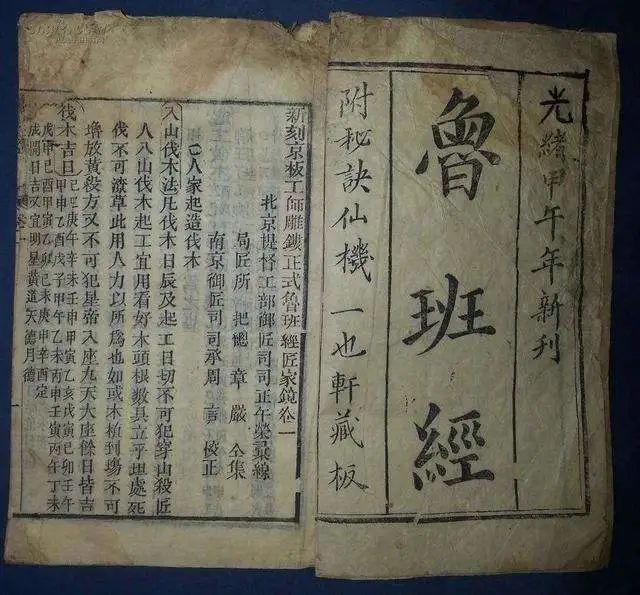 光緒甲午年新刊
魯班經
附秘訣仙機 一也軒藏板
新刻京板工師雕鏤正式魯班經匠家鏡卷一
北京提督工部御匠司司正午榮彙線
局匠所把總章嚴仝集
南京御匠司司承周言校正
人家起造伐木
入山伐木法凡伐木日辰及起工日切不可犯穿山殺匠
人入山伐木起工宜用看好木頭根數具立平坦處死
伐不可潦草此用人力以所為也如或木植到塲不可
堆放黃殺方又不可犯皇帝八座九天大座餘日皆吉
伐木吉日
己巳庚午辛未壬申甲寅乙亥戊寅己卯壬午
甲申乙酉戊子甲午乙未丙申壬寅丙午丁未
戊申己酉甲寅乙卯己未庚申辛酉定
成開日吉又宜明星黃道天德月德